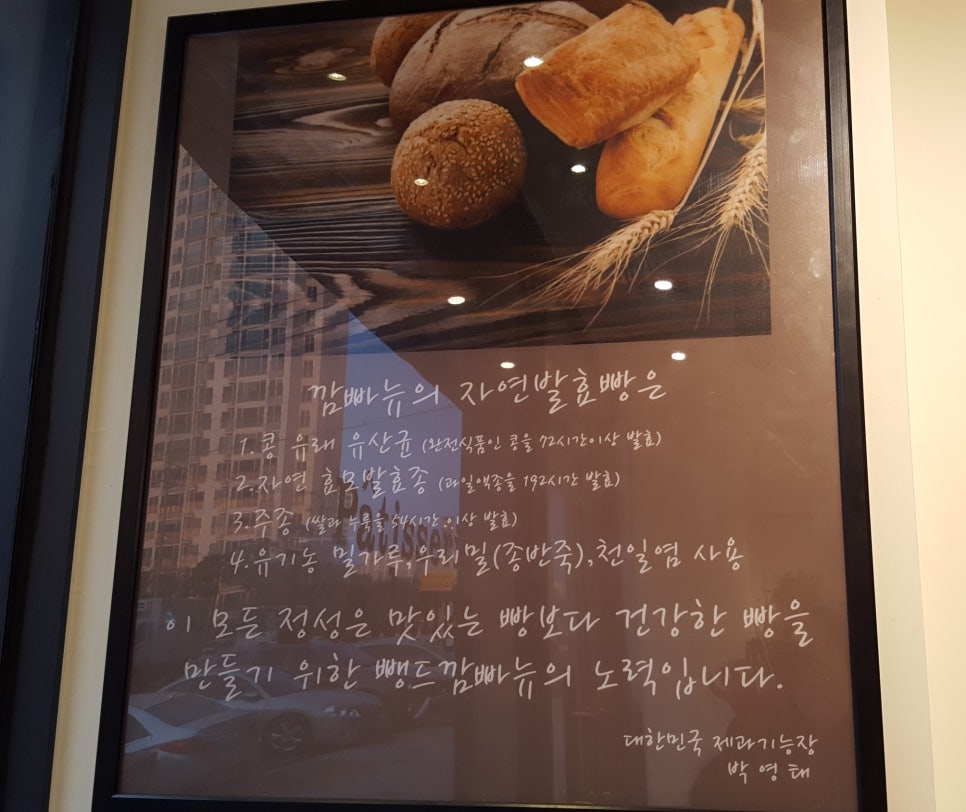 깜빠뉴의 자연발효빵은
1.콩 유래 유산균 (완전식품인 콩을 72시간이상 발효)
2.자연 효모발효종 (과일액종을 192시간 발효)
3.주종 (쌀과 누룩을 54시간 이상 발효)
4.유기농 밀가루,우리밀(종반죽),천일염 사용
이 모든 정성은 맛있는 빵보다 건강한 빵을
만들기 위한 뺑드깜빠뉴의 노력입니다.
대한민국 제과기능장
박영태